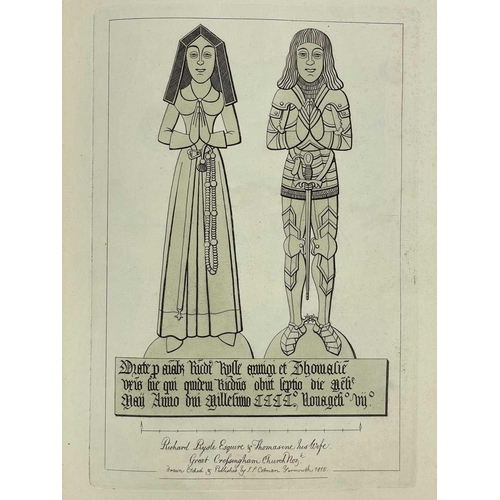 Orate p aiabz Ricdi Rysle armigi et Thomasie
uxis sue qui quidem Ricdus obiit septio die Mēs
Maij Anno dni Millesimo CCCC° Nonagesi° vij°
Richard Rysle Esquire & Thomasine his Wife.
Great Cressingham Church Nor.k
Drawn Etched & Published by J S Cotman Yarmouth 1815